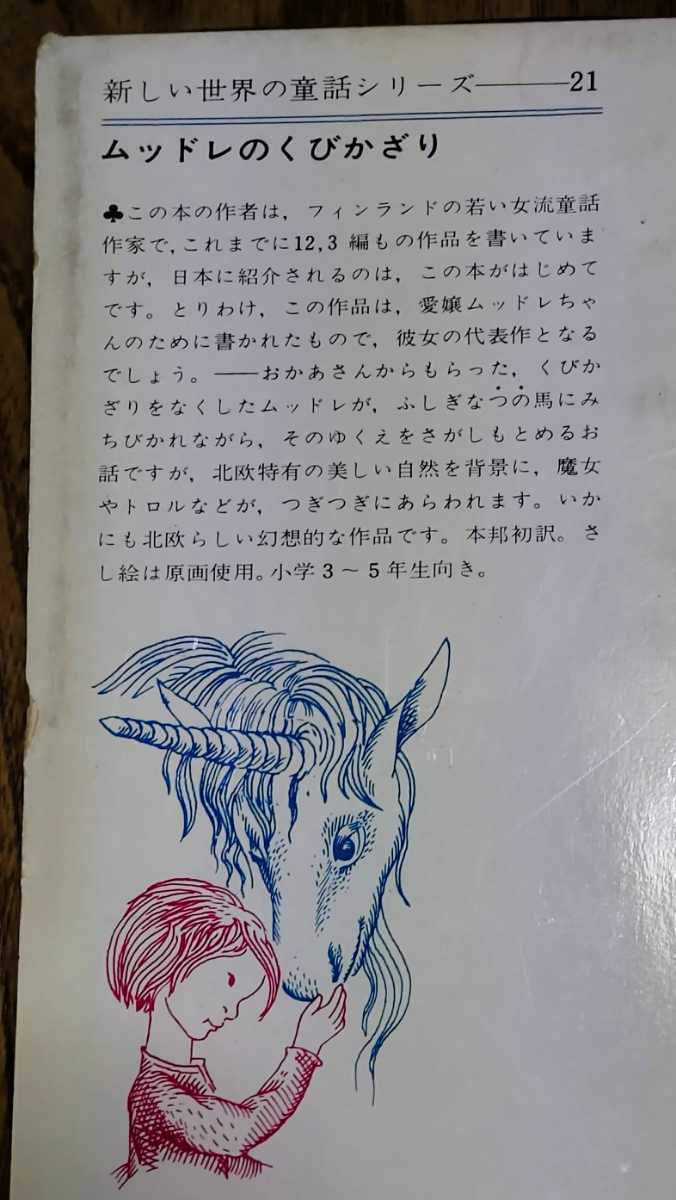 新しい世界の童話シリーズ――21
ムッドレのくびかざり
♣この本の作者は，フィンランドの若い女流童話
作家で，これまでに12,3 編もの作品を書いていま
すが，日本に紹介されるのは，この本がはじめて
です。とりわけ，この作品は，愛嬢ムッドレちゃ
んのために書かれたもので，彼女の代表作となる
でしょう。――おかあさんからもらった，くびか
ざりをなくしたムッドレが，ふしぎなつの馬にみ
ちびかれながら，そのゆくえをさがしもとめるお
話ですが，北欧特有の美しい自然を背景に，魔女
やトロルなどが，つぎつぎにあらわれます。いか
にも北欧らしい幻想的な作品です。本邦初訳。さ
し絵は原画使用。小学3～5年生向き。